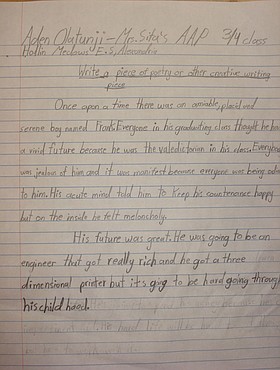 Aden Olatunji - Mr. Sika's AAP 3/4 class
Hollin Meadows E.S, Alexandria
Write a piece of poetry or other creative writing
piece
Once upon a time there was an amiable, placid and
serene boy named Frank. Everyone in his graduating class thought he had
a vivid future because he was the valedictorian in his class. Everybody
was jealous of him and it was manifest because everyone was being
to him. His acute mind told him to keep his countenance happy
but on the inside he felt melancholy.
His future was great. He was going to be an
engineer that got really rich and he got a three
dimensional printer but it's goig to be hard going through
his child hood.